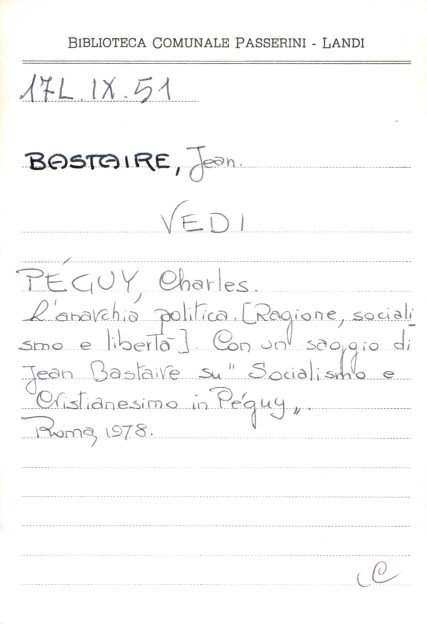 BIBLIOTECA COMUNALE PASSERINI - LANDI
17L.IX.51
BASTAIRE, Jean.
VEDI
PÉGUY, Charles.
L'anarchia politica. [Ragione, sociali
smo e libertà]. Con un saggio di
Jean Bastaire su "Socialismo e
Cristianesimo in Péguy„.
Roma, 1978.
C